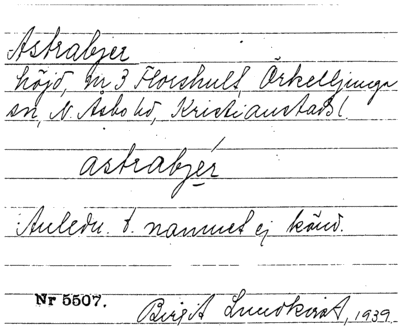 Astrabjer
höjd, nr 3 Florshult, Örkelljunga
sn, N. Åsbo hd, Kristianstads l
astrabjér
Anledn. t. namnet ej känd.
Nr 5507.
Birgit Lundkvist, 1939